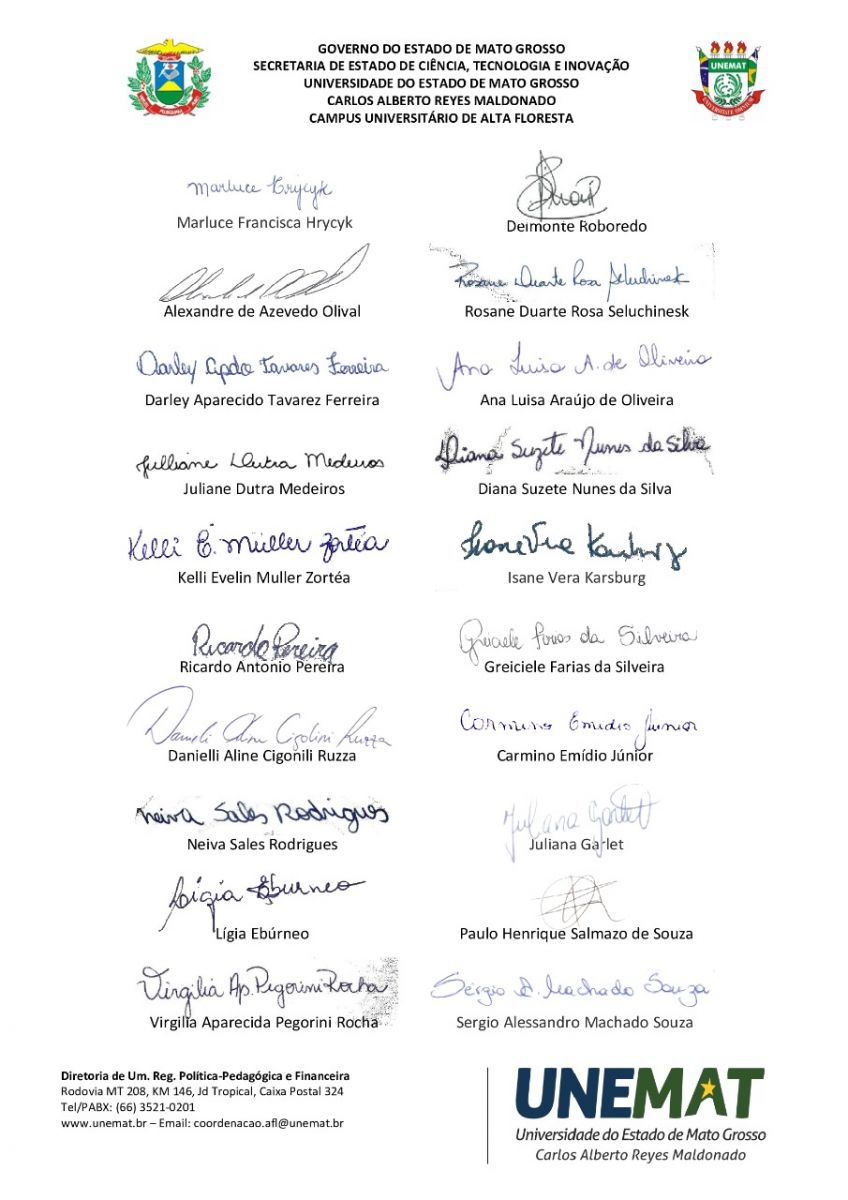 GOVERNO DO ESTADO DE MATO GROSSO
SECRETARIA DE ESTADO DE CIÊNCIA, TECNOLOGIA E INOVAÇÃO
UNIVERSIDADE DO ESTADO DE MATO GROSSO
CARLOS ALBERTO REYES MALDONADO
CAMPUS UNIVERSITÁRIO DE ALTA FLORESTA
UNEMAT
Marluce Hrycyk
Marluce Francisca Hrycyk
Delmonte Roboredo
Alexandre de Azevedo Olival
Rosane Duarte Rosa Seluchinesk
Rosane Duarte Rosa Seluchinesk
Darley Apdo Tavares Ferreira
Ana Luisa A. de Oliveira
Darley Aparecido Tavarez Ferreira
Ana Luisa Araújo de Oliveira
Julliane Dutra Medeiros
Diana Suzete Nunes da Silva
Juliane Dutra Medeiros
Diana Suzete Nunes da Silva
Kelli E. Müller Zortéa
Isane Vera Karsburg
Kelli Evelin Muller Zortéa
Isane Vera Karsburg
Ricardo Pereira
Greiciele Farias da Silveira
Ricardo Antonio Pereira
Greiciele Farias da Silveira
Danieli Aline Cigolini Ruzza
Carmino Emidio Júnior
Danielli Aline Cigonili Ruzza
Carmino Emídio Júnior
Neiva Sales Rodrigues
Juliana Garlet
Neiva Sales Rodrigues
Juliana Garlet
Ligia Eburneo
Lígia Ebúrneo
Paulo Henrique Salmazo de Souza
Virgilia Ap. Pegorini Rocha
Sérgio A. Machado Souza
Virgilia Aparecida Pegorini Rocha
Sergio Alessandro Machado Souza
Diretoria de Um. Reg. Política-Pedagógica e Financeira
Rodovia MT 208, KM 146, Jd Tropical, Caixa Postal 324
Tel/PABX: (66) 3521-0201
www.unemat.br – Email: coordenacao.afl@unemat.br
UNEMAT
Universidade do Estado de Mato Grosso
Carlos Alberto Reyes Maldonado